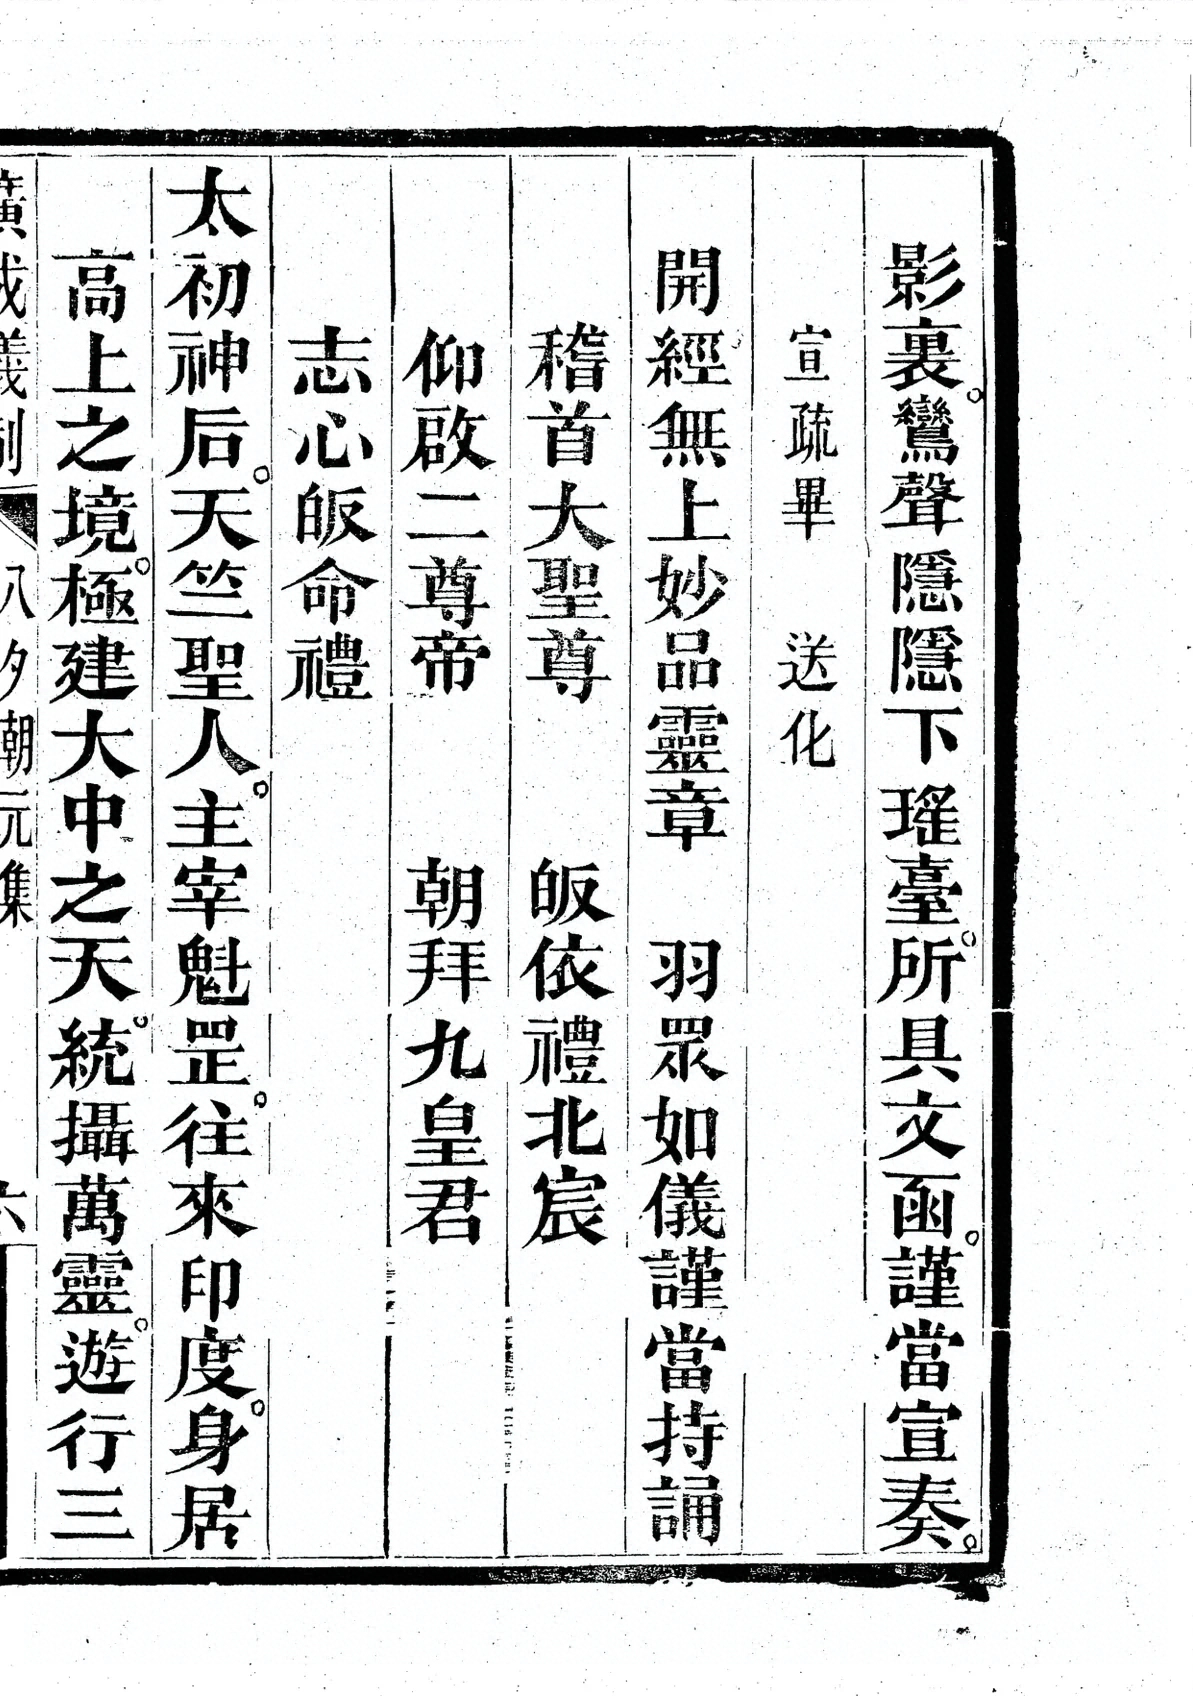 影裏。鸞聲隱隱下瑤臺。所具文函。謹當宣奏。
宣疏畢　送化
開經無上妙品靈章　羽眾如儀謹當持誦
稽首大聖尊　皈依禮北宸
仰啟二尊帝　朝拜九皇君
志心皈命禮
太初神后。天竺聖人。主宰魁罡。往來印度。身居
高上之境。極建大中之天。統攝萬靈。遊行三
廣成儀制　八夕朝元集　六